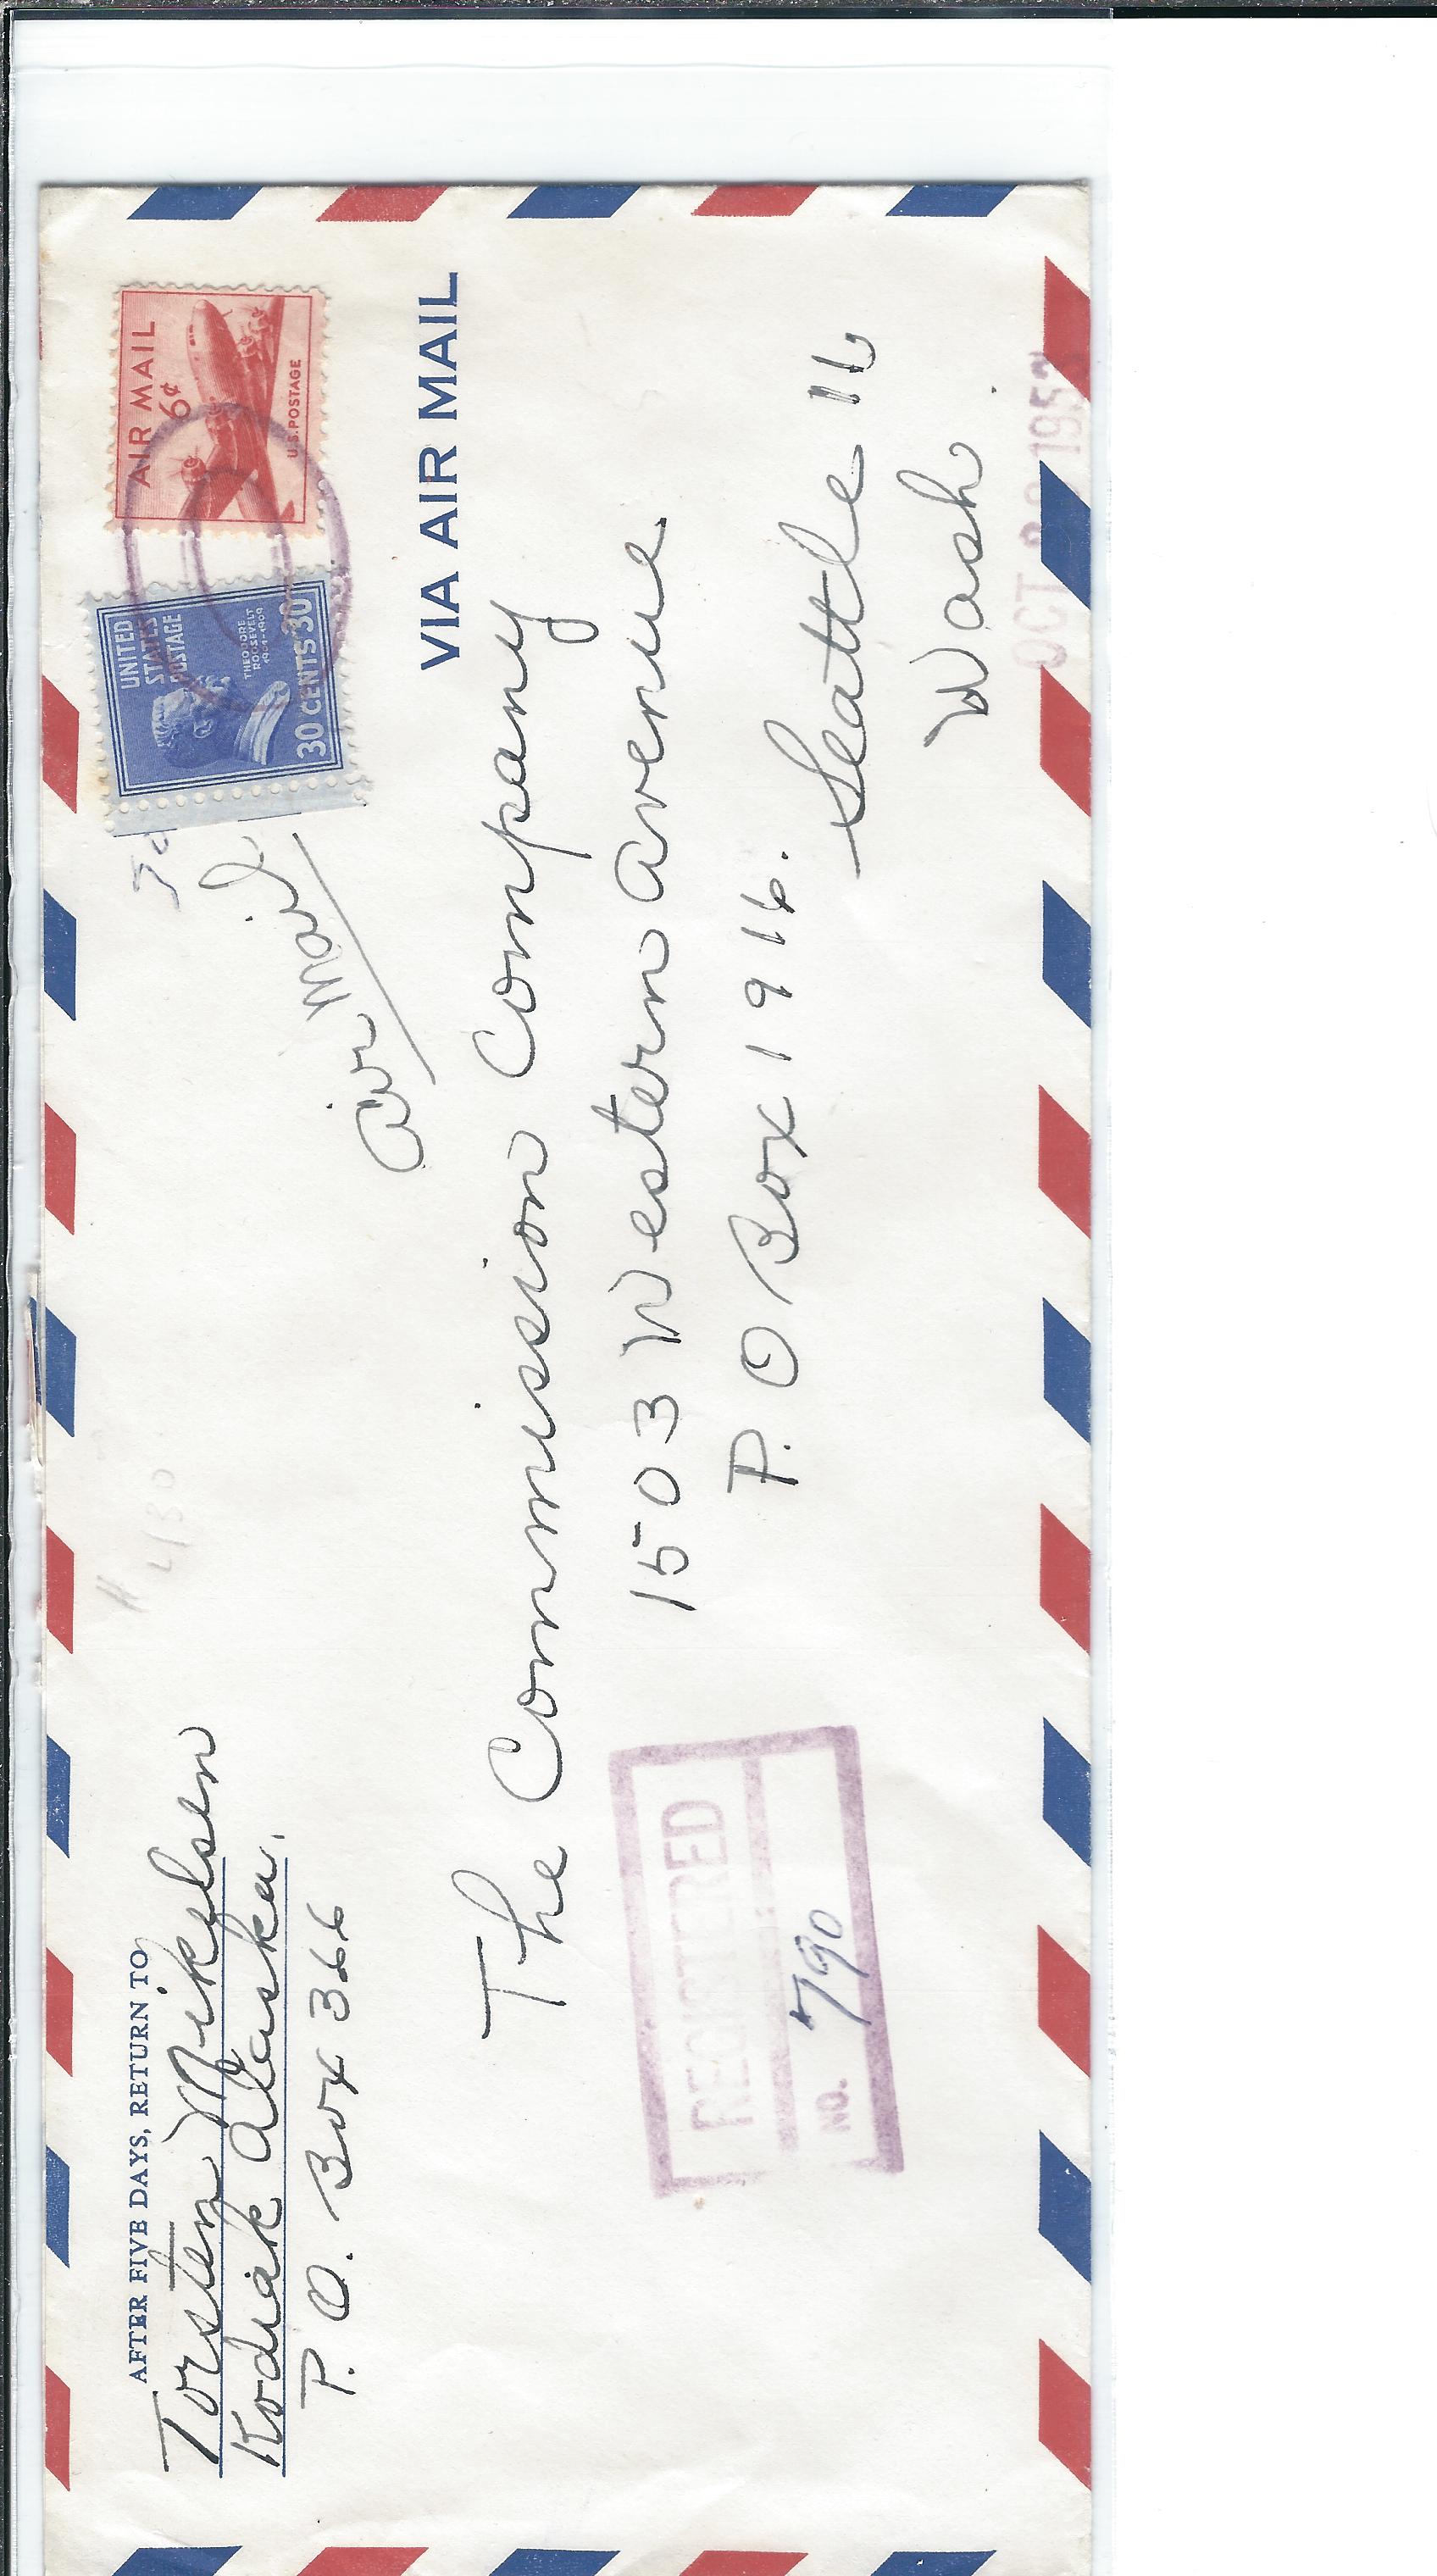 AFTER FIVE DAYS, RETURN TO
Torsten Mikelsen
Kodiak Alaska.
P. O. Box 366
AIR MAIL
6¢
U.S. POSTAGE
UNITED
STATES
POSTAGE
THEODORE
ROOSEVELT
1901-1909
30 CENTS 30
VIA AIR MAIL
air mail
The Commission Company
1503 Western Avenue
P. O Box 1916.
Seattle 16
Wash.
REGISTERED
NO. 790
OCT